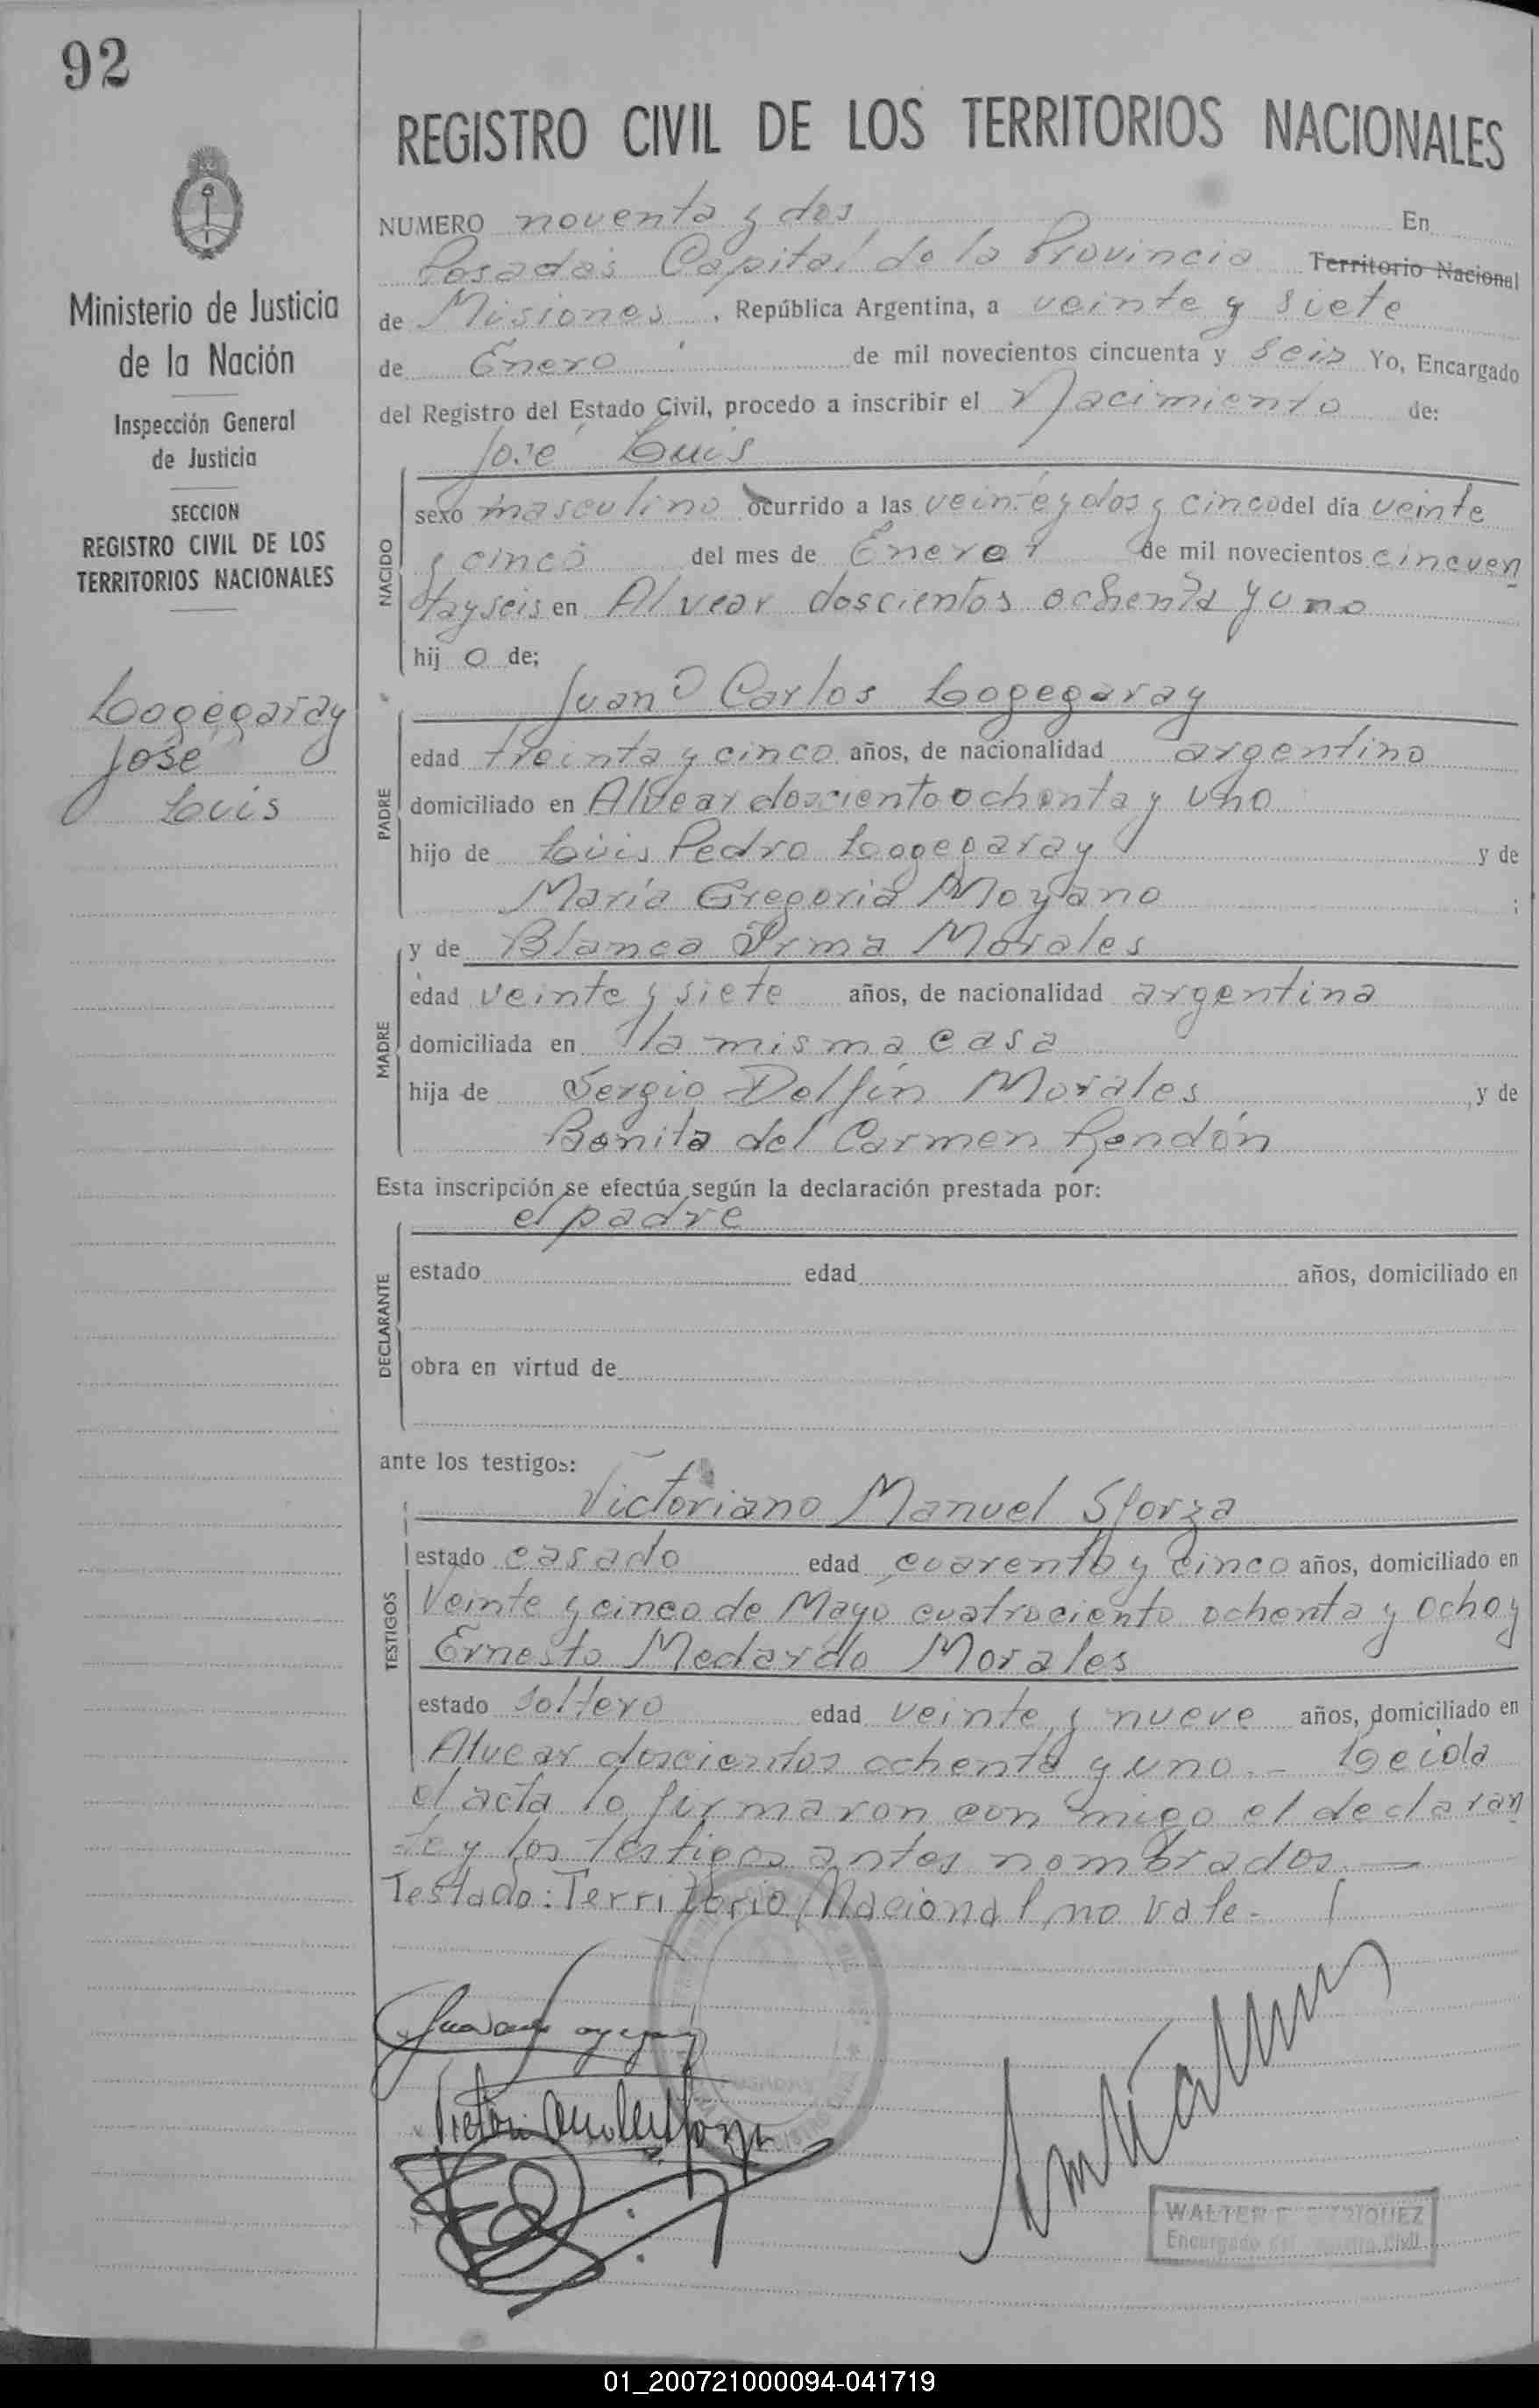 92
REGISTRO CIVIL DE LOS TERRITORIOS NACIONALES
Ministerio de Justicia
de la Nación
Inspección General
de Justicia
SECCION
REGISTRO CIVIL DE LOS
TERRITORIOS NACIONALES
Logegaray
José
Luis
NUMERO noventa y dos En
Posadas Capital de la Provincia Territorio Nacional
de Misiones, República Argentina, a veinte y siete
de Enero de mil novecientos cincuenta y seis Yo, Encargado
del Registro del Estado Civil, procedo a inscribir el Nacimiento de:
José Luis
NACIDO
sexo masculino ocurrido a las veinte y dos y cinco del día veinte
y cinco del mes de Enero de mil novecientos cincuen
tay seis en Alvear doscientos ochenta y uno
hij o de;
Juan Carlos Logegaray
PADRE
edad treinta y cinco años, de nacionalidad argentino
domiciliado en Alvear dosciento ochenta y uno
hijo de Luis Pedro Logegaray y de
María Gregoria Moyano ;
y de Blanca Irma Morales
MADRE
edad veinte y siete años, de nacionalidad argentina
domiciliada en la misma casa
hija de Sergio Delfín Morales y de
Benita del Carmen Rendón
Esta inscripción se efectúa según la declaración prestada por:
el padre
DECLARANTE
estado edad años, domiciliado en
obra en virtud de
ante los testigos:
Victoriano Manuel Sforza
TESTIGOS
estado casado edad cuarenta y cinco años, domiciliado en
Veinte y cinco de Mayo cuatrociento ochenta y ocho y
Ernesto Medardo Morales
estado soltero edad veinte y nueve años, domiciliado en
Alvear doscientos ochenta y uno.- Leida
el acta la firmaron con migo el declaran
te y los testigos antes nombrados.—
Testado: Territorio Nacional, no vale.-
WALTER
Encargado del Civil
01_200721000094-041719